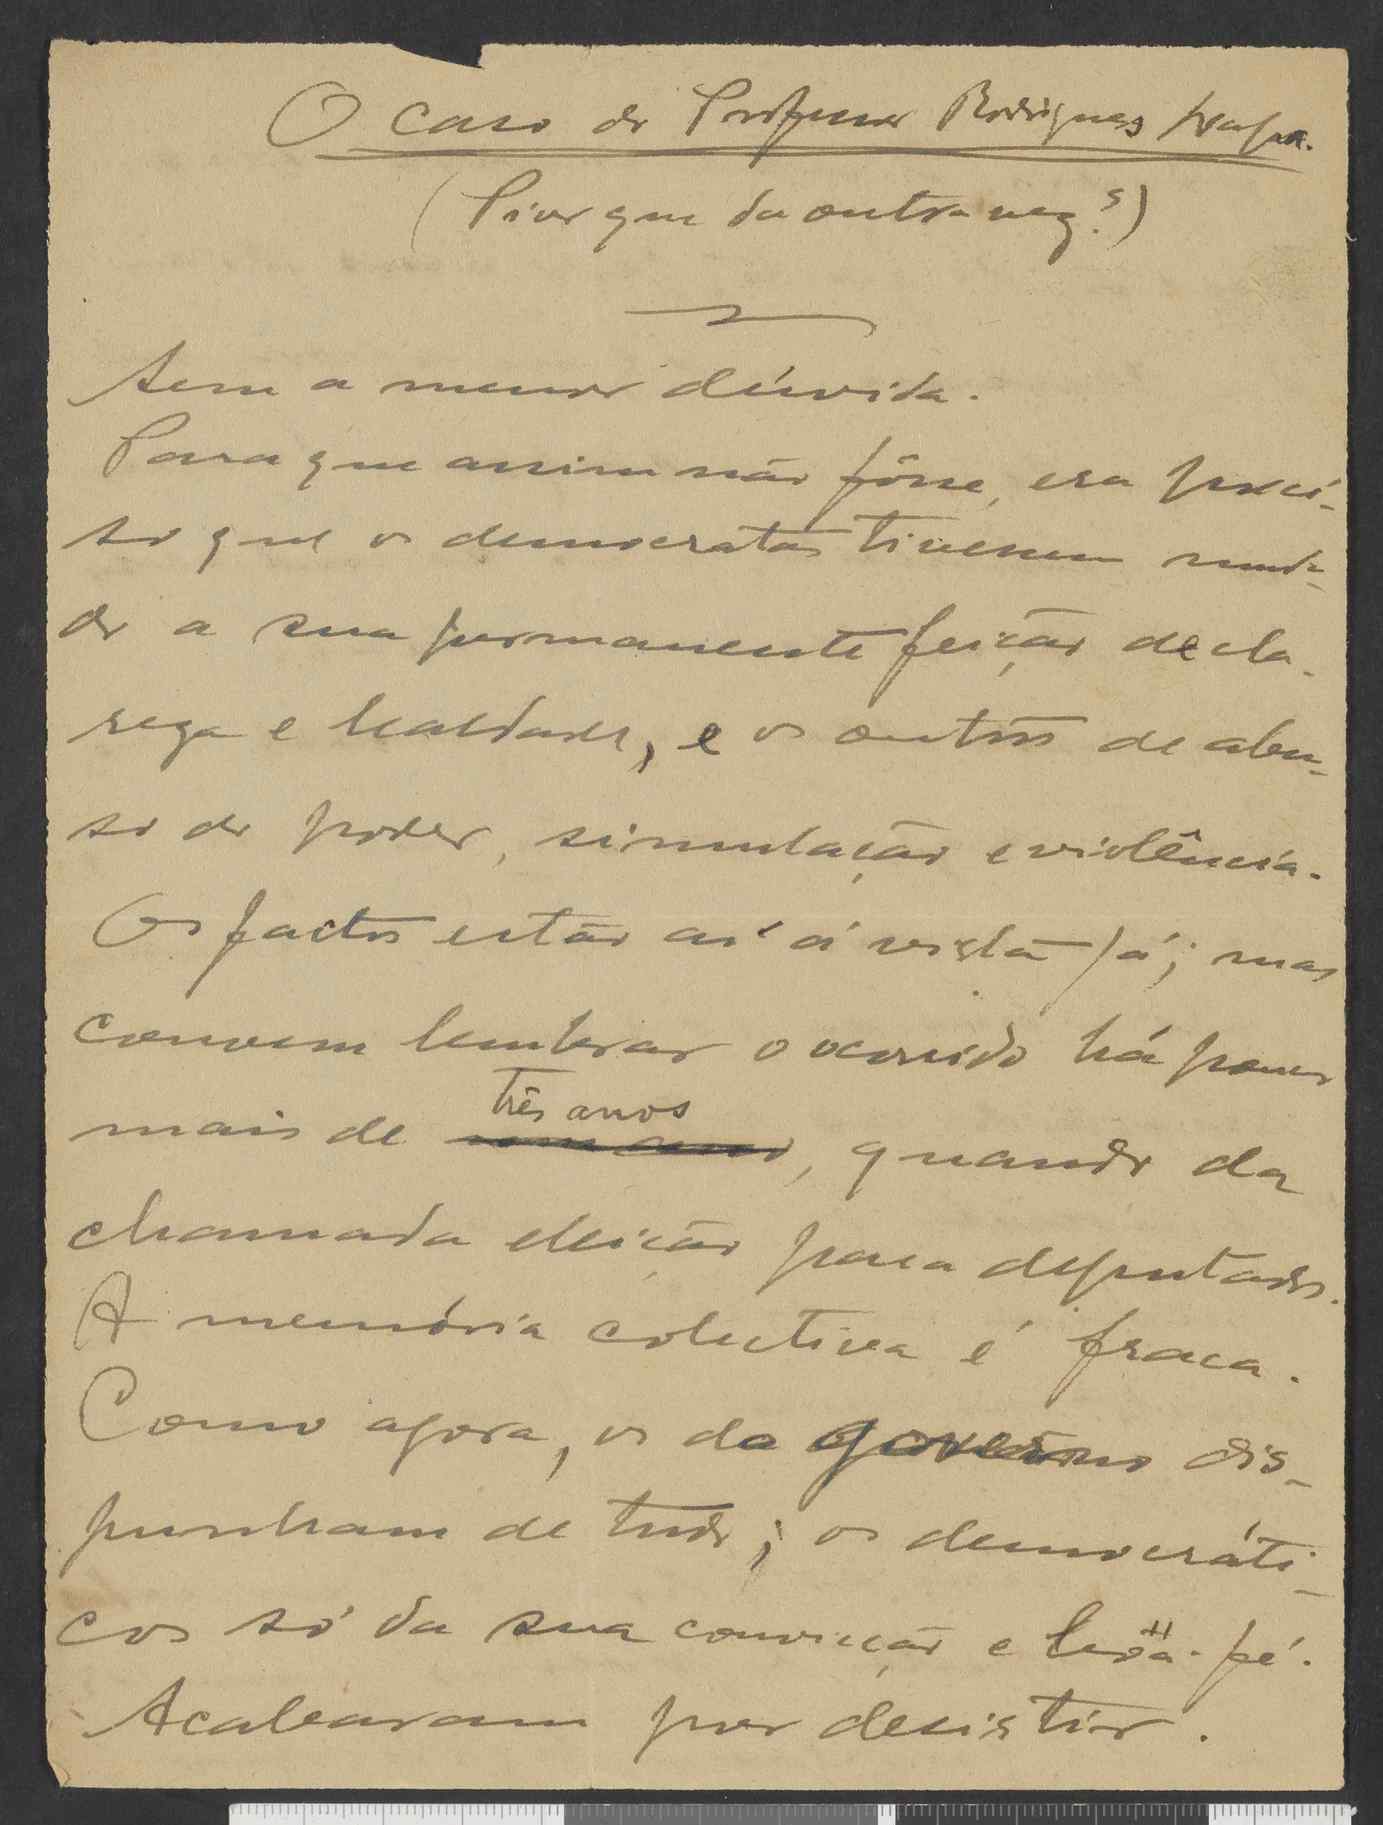 O caso do Professor Rodrigues Lapa.
(Pior que da outra vez?)
Sem a menor dúvida.
Para que assim não fôsse, era preci-
so que os democratas tivessem muda-
do a sua permanente feição de cla-
reza e lealdade, e os outros de abu-
so do poder, simulação e violência.
Os factos estão aí á vista já; mas
convem lembrar o ocorrido há pouco
três anos
mais de um ano, quando da
chamada eleição para deputados.
A memória colectiva é fraca.
Como agora, os do governo dis-
punham de tudo; os democráti-
cos só da sua convicção e boa-fé.
Acabaram por desistir.